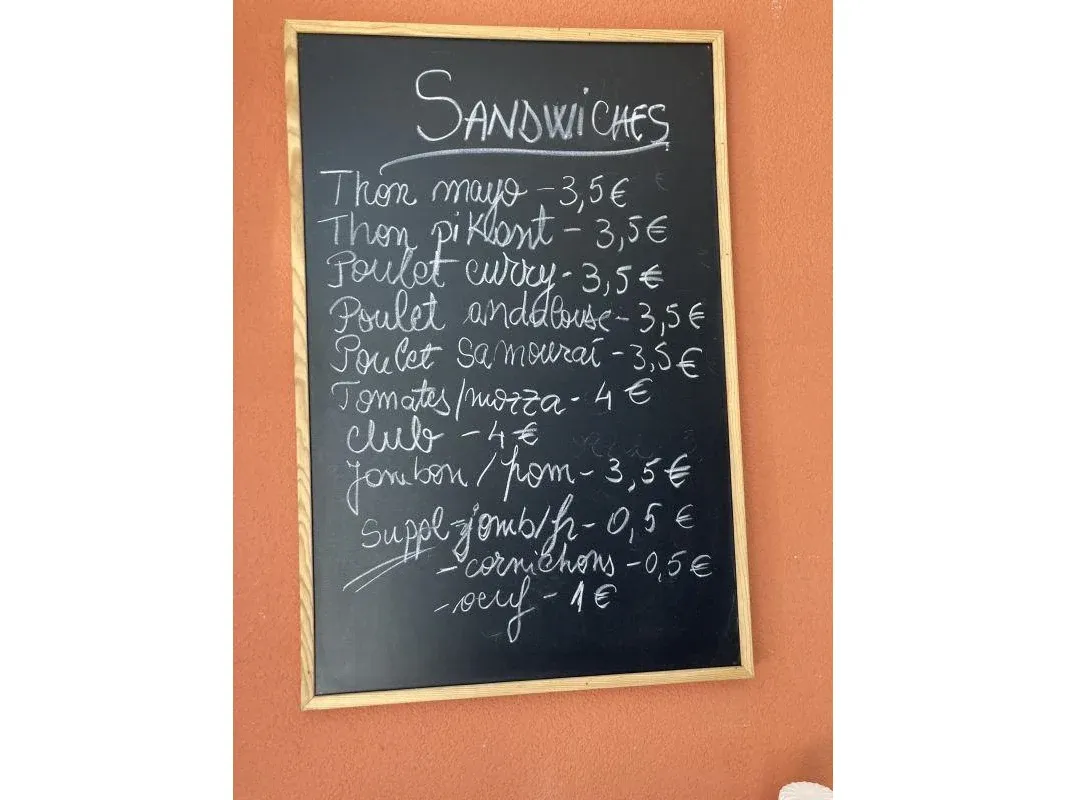 SANDWiCHES
Thon mayo - 3,5 €
Thon piKant - 3,5 €
Poulet curry - 3,5 €
Poulet andalouse - 3,5 €
Poulet Samouraï - 3,5 €
Tomates/mozza - 4 €
club - 4 €
Jambon / from - 3,5 €
Suppl - jamb/fr - 0,5 €
- cornichons - 0,5 €
- oeuf - 1 €